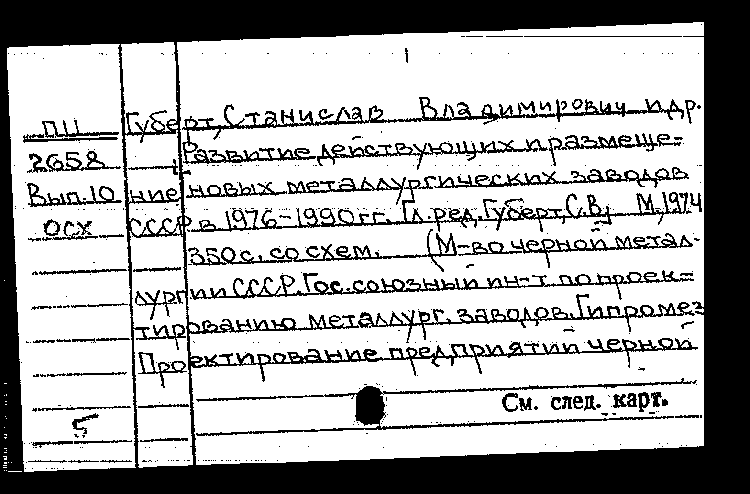 ПЦ Губерт, Станислав Владимирович и др.
2658 Развитие действующих и размеще-
Вып.10 ние новых металлургических заводов
ОСХ СССР в 1976-1990гг. Гл.ред. Губерт, С.В. М, 1974
350с. со схем. (М-во черной метал-
лургии СССР. Гос. союзный ин-т по проек-
тированию металлург. заводов. Гипромез
Проектирование предприятий черной
См. след. карт.
5